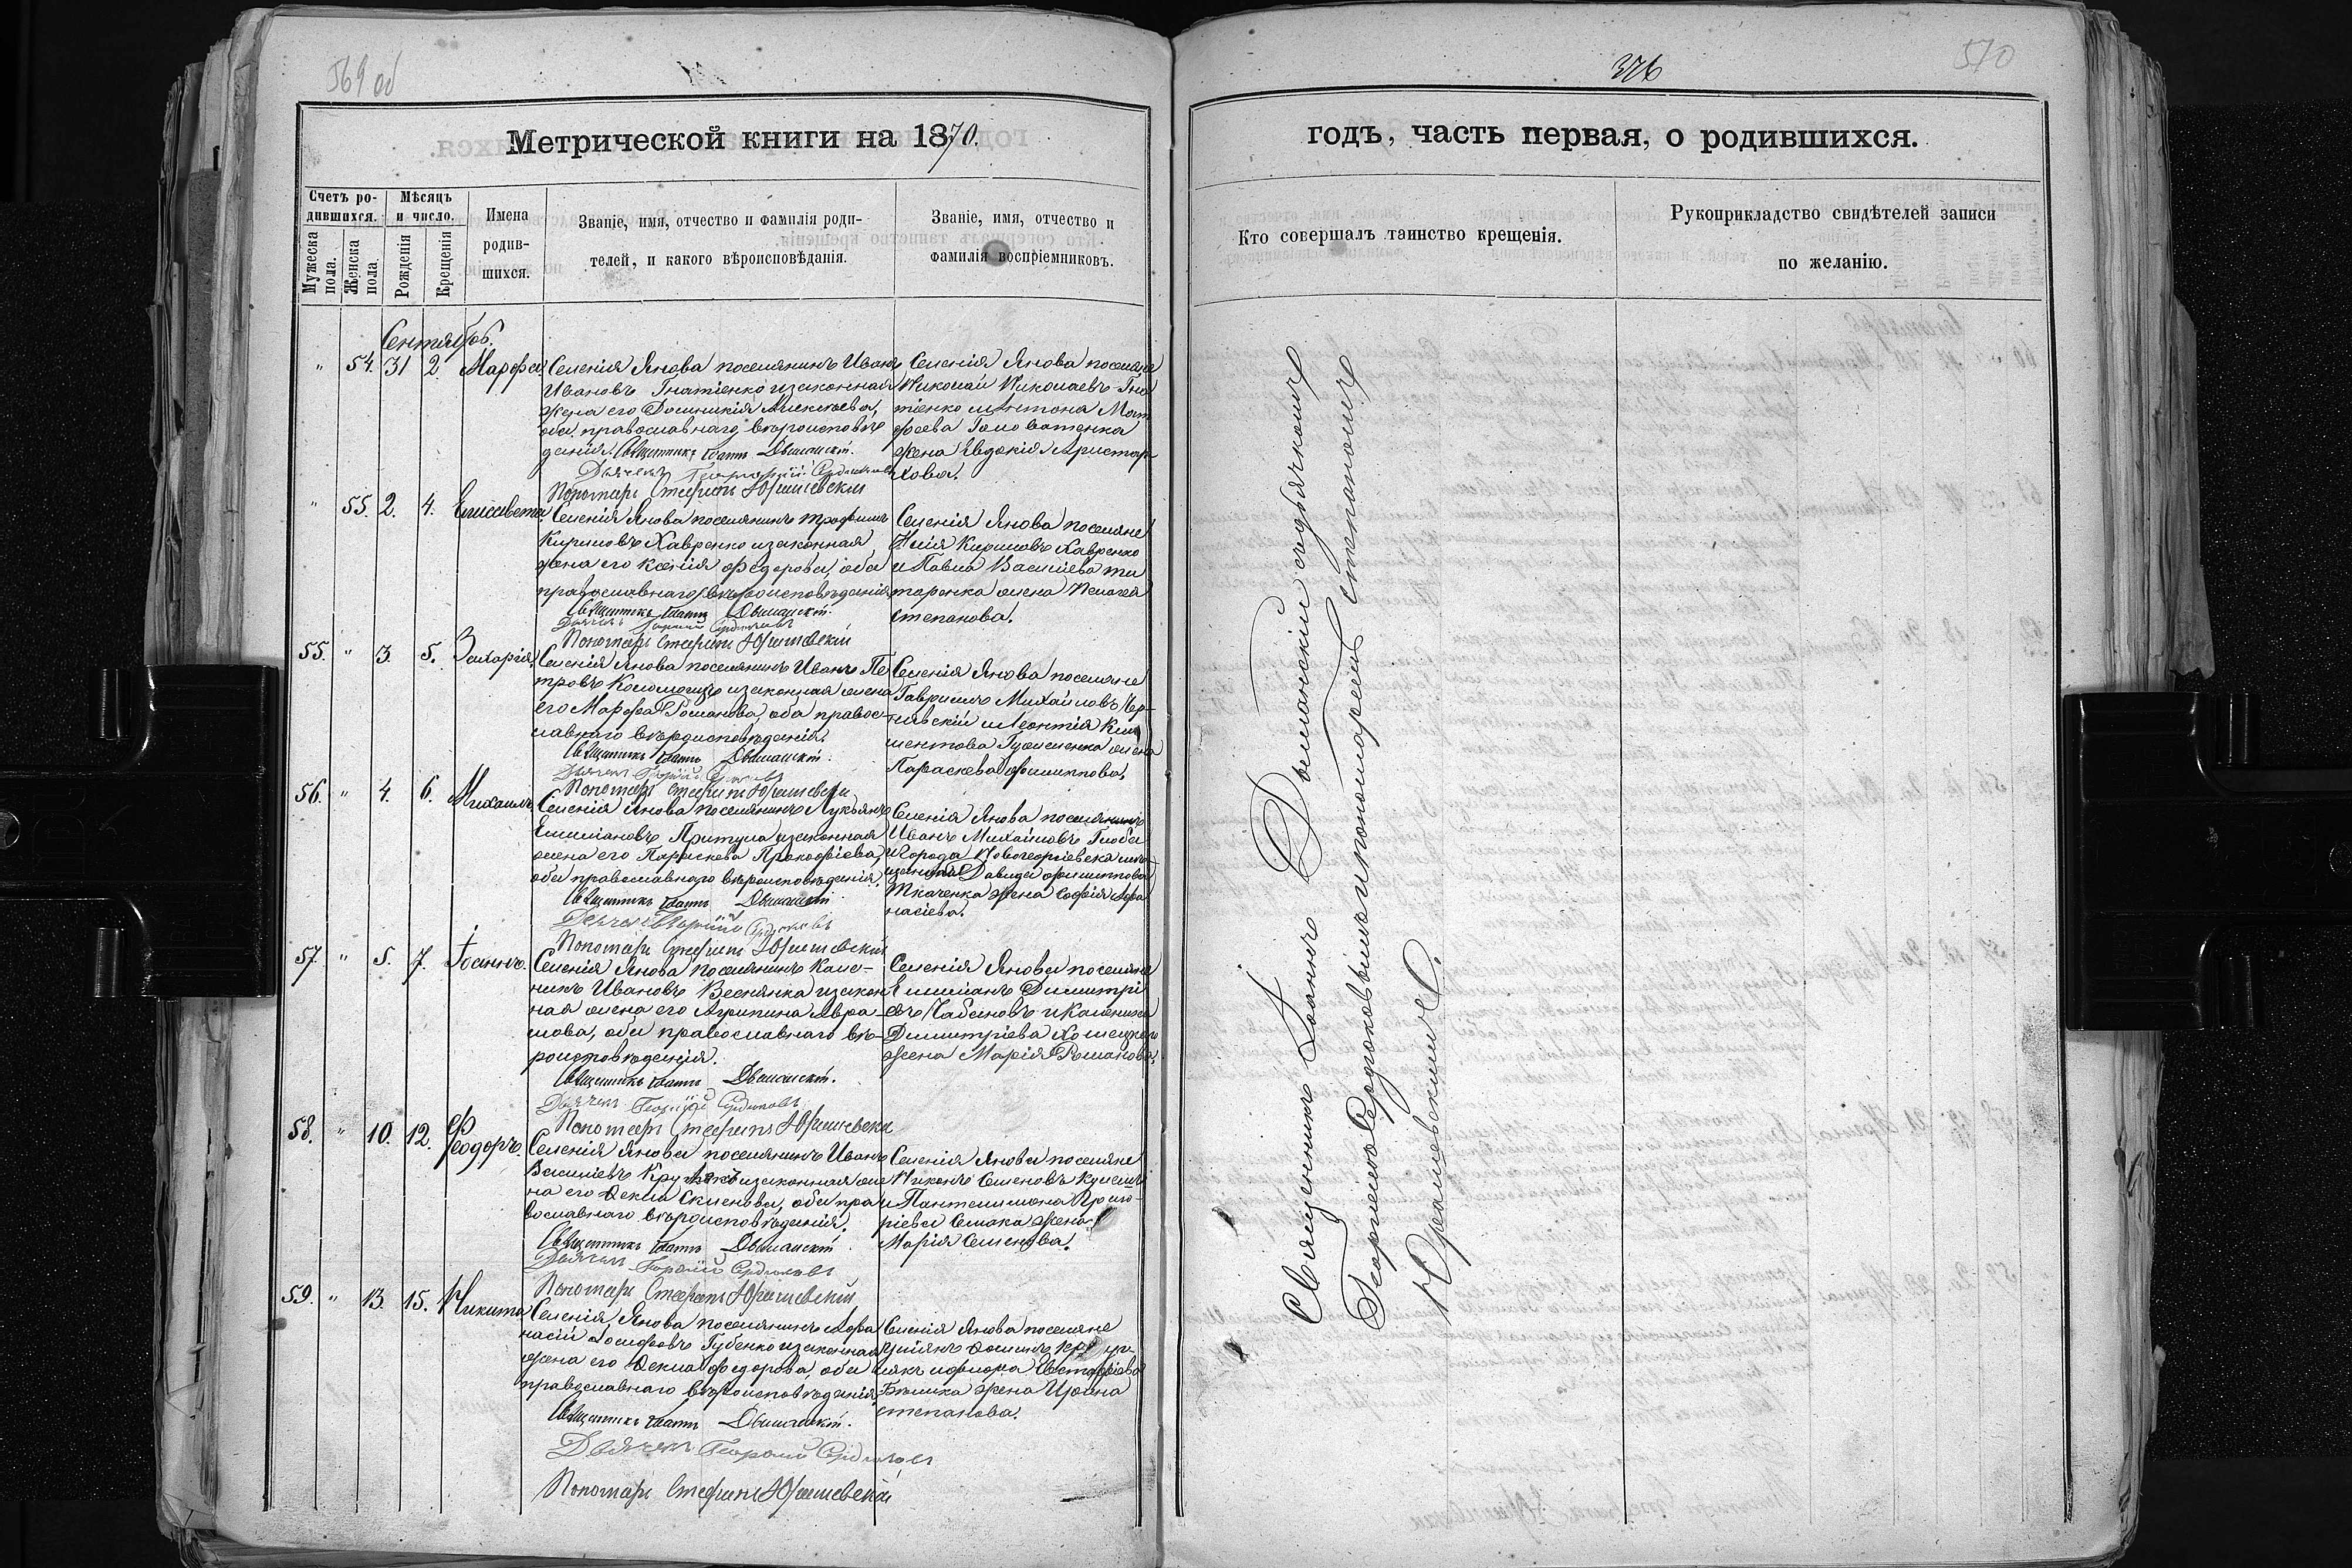 569 об
376
570
Метрической книги на 1870.
годъ, часть первая, о родившихся.
Счетъ ро-
дившихся.
Мужеска
пола.
Женска
пола.
Мѣсяцъ
и число.
Рожденія
Крещенія
Имена
родив-
шихся.
Званіе, имя, отчество и фамилія роди-
телей, и какого вѣроисповѣданія.
Званіе, имя, отчество и
фамилія воспріемниковъ.
Кто совершалъ таинство крещенія.
Рукоприкладство свидѣтелей записи
по желанію.
Сентябрь.
" 54. 31 2. Марфа
Селенія Янова поселянинъ Иванъ
Ивановъ Гнатіенко и законная
жена его Домникія Алексѣева,
оба православнаго вѣроисповѣ
данія. Священникъ Іоаннъ Доманскій.
Дьячекъ Георгій Сердюковъ
Пономарь Стефанъ Юрашевскій
Селенія Янова поселяне
Николай Николаевъ Гна
тіенко и Антона Мат
феева Головатенка
жена Евдокія Аристар
хова.
" 55. 2. 4. Елисавета.
Селенія Янова поселянинъ Трофимъ
Кириловъ Хавренко и законная
жена его Ксенія Федорова, оба
православнаго вѣроисповѣданія
Священникъ Іоаннъ Доманскій.
Дьячекъ Георгій Сердюковъ
Пономарь Стефанъ Юрашевскій
Селенія Янова поселяне
Илія Кириловъ Хавренко
и Павла Василіева Ти
таренка жена Пелагея
Степанова.
55. " 3. 5. Захарія.
Селенія Янова поселянинъ Иванъ Пе
тровъ и законная жена
его Марфа Романова, оба правос-
лавнаго вѣроисповѣданія.
Священникъ Іоаннъ Доманскій.
Дьячекъ Георгій Сердюковъ
Пономарь Стефанъ Юрашевскій
Селенія Янова поселяне
Гавріилъ Михайловъ Чер-
нявскій и Леонтія Кли
ментова жена
Параскева Филиппова.
56. " 4. 6. Михаилъ
Селенія Янова поселянинъ Лукьянъ
Емиліановъ Притула и законная
жена его Параскева Прокофіева,
оба православнаго вѣроисповѣданія.
Священникъ Іоаннъ Доманскій
Дьячекъ Георгій Сердюковъ
Пономарь Стефанъ Юрашевскій
Селенія Янова поселянинъ
Иванъ Михайловъ Глоба
и города Новогеоргіевска мѣ-
щанина Давида Филиппова
Ткаченка жена Софія Афа
насіева.
57. " 5. 7. Іоаннъ.
Селенія Янова поселянинъ Кале-
никъ Ивановъ Веснянка и закон
ная жена его Агрипина Авра-
мова, оба православнаго вѣ-
роисповѣданія.
Священникъ Іоаннъ Доманскій.
Дьячекъ Георгій Сердюковъ
Пономарь Стефанъ Юрашевскій
Селенія Янова поселяне
Емиліанъ Димитрі
евъ Чабановъ и Каленика
Димитріева
жена Марія Романова.
58. " 10. 12. Феодоръ.
Селенія Янова поселянинъ Иванъ
Василіевъ и законная же
на его Фекла Семенова, оба пра
вославнаго вѣроисповѣданія.
Священникъ Іоаннъ Доманскій.
Дьячекъ Георгій Сердюковъ
Пономарь Стефанъ Юрашевскій
Селенія Янова поселяне
Никонъ Семеновъ
и Пантелимона Григо-
ріева жена
Марія Семенова.
59. " 13. 15. Никита
Селенія Янова поселянинъ Афа
насій Іосифовъ Губенко и законная
жена его Фекла Федорова, оба
православнаго вѣроисповѣданія.
Священникъ Іоаннъ Доманскій.
Дьячекъ Георгій Сердюковъ
Пономарь Стефанъ Юрашевскій
Селенія Янова поселяне
Евстафіева
жена Ирина
Степанова.
Священникъ Іоаннъ Доманскій съ дьячкомъ
Георгіемъ Сердюковымъ и пономаремъ Стефаномъ
Юрашевскимъ.